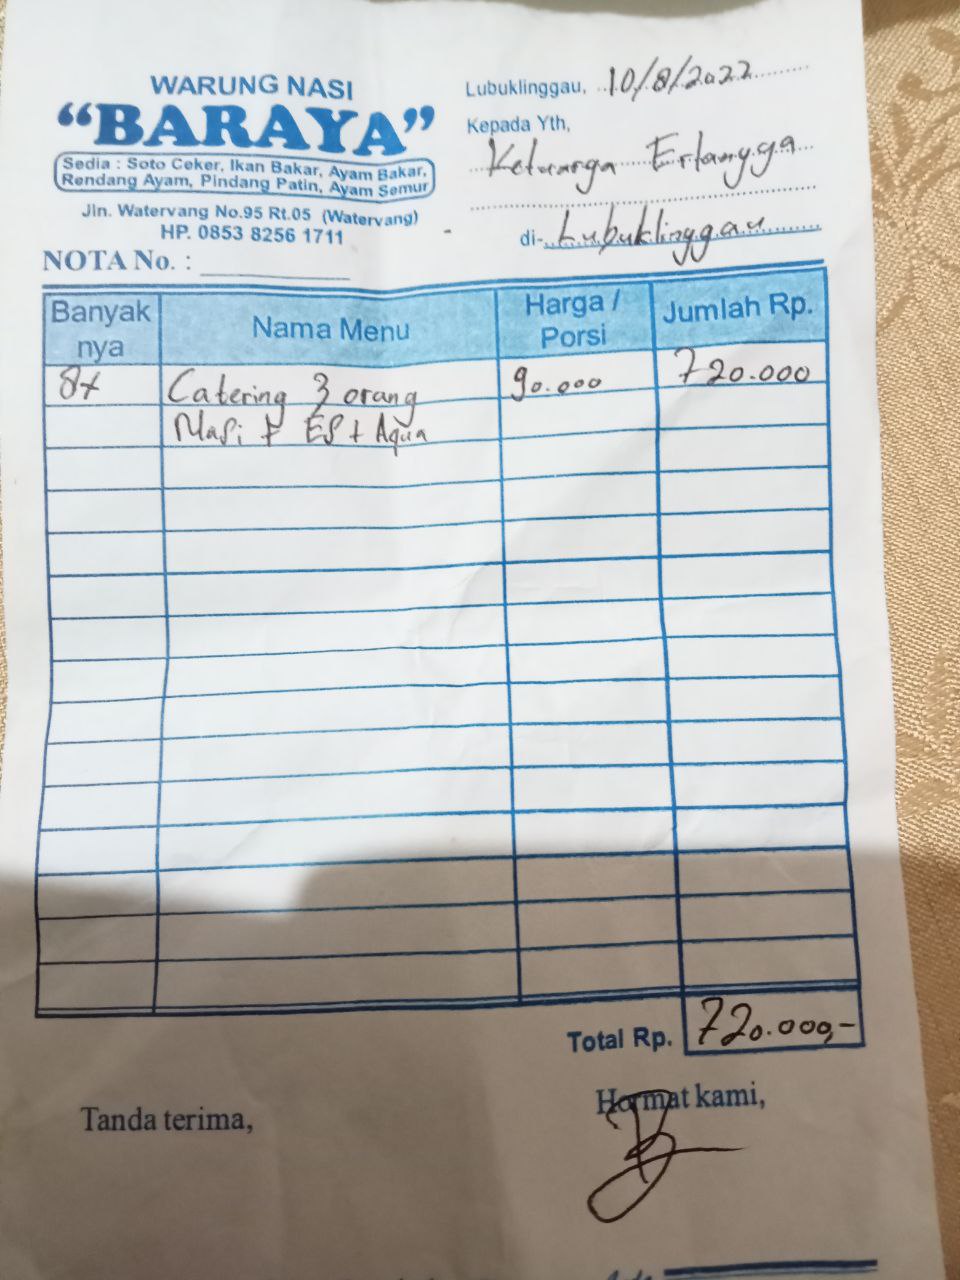 WARUNG NASI
"BARAYA"
Sedia : Soto Ceker, Ikan Bakar, Ayam Bakar,
Rendang Ayam, Pindang Patin, Ayam Semur
Jln. Watervang No.95 Rt.05 (Watervang)
HP. 0853 8256 1711
NOTA No. :
Lubuklinggau, 10/8/2022
Kepada Yth,
Keluarga Erlangga
di- Lubuklinggau
Banyak nya Nama Menu Harga / Porsi Jumlah Rp.
8x Catering 3 orang 90.000 720.000
Nasi + ES + Aqua
Total Rp. 720.000,-
Tanda terima,
Hormat kami,